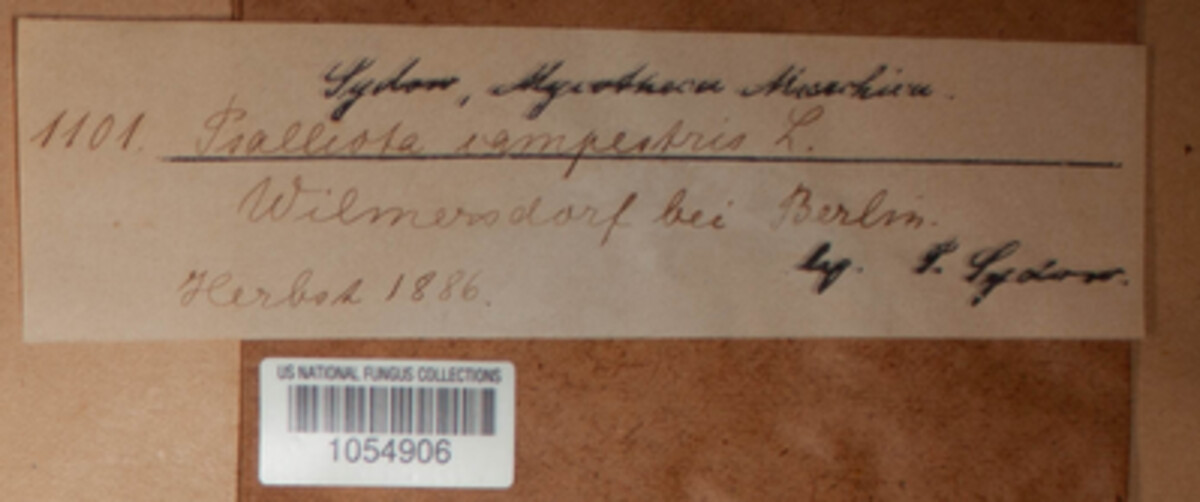 Sydow, Mycotheca Marchica.
1101. Psalliota campestris L.
Wilmersdorf bei Berlin.
leg. P. Sydow.
Herbst 1886.
US NATIONAL FUNGUS COLLECTIONS
1054906